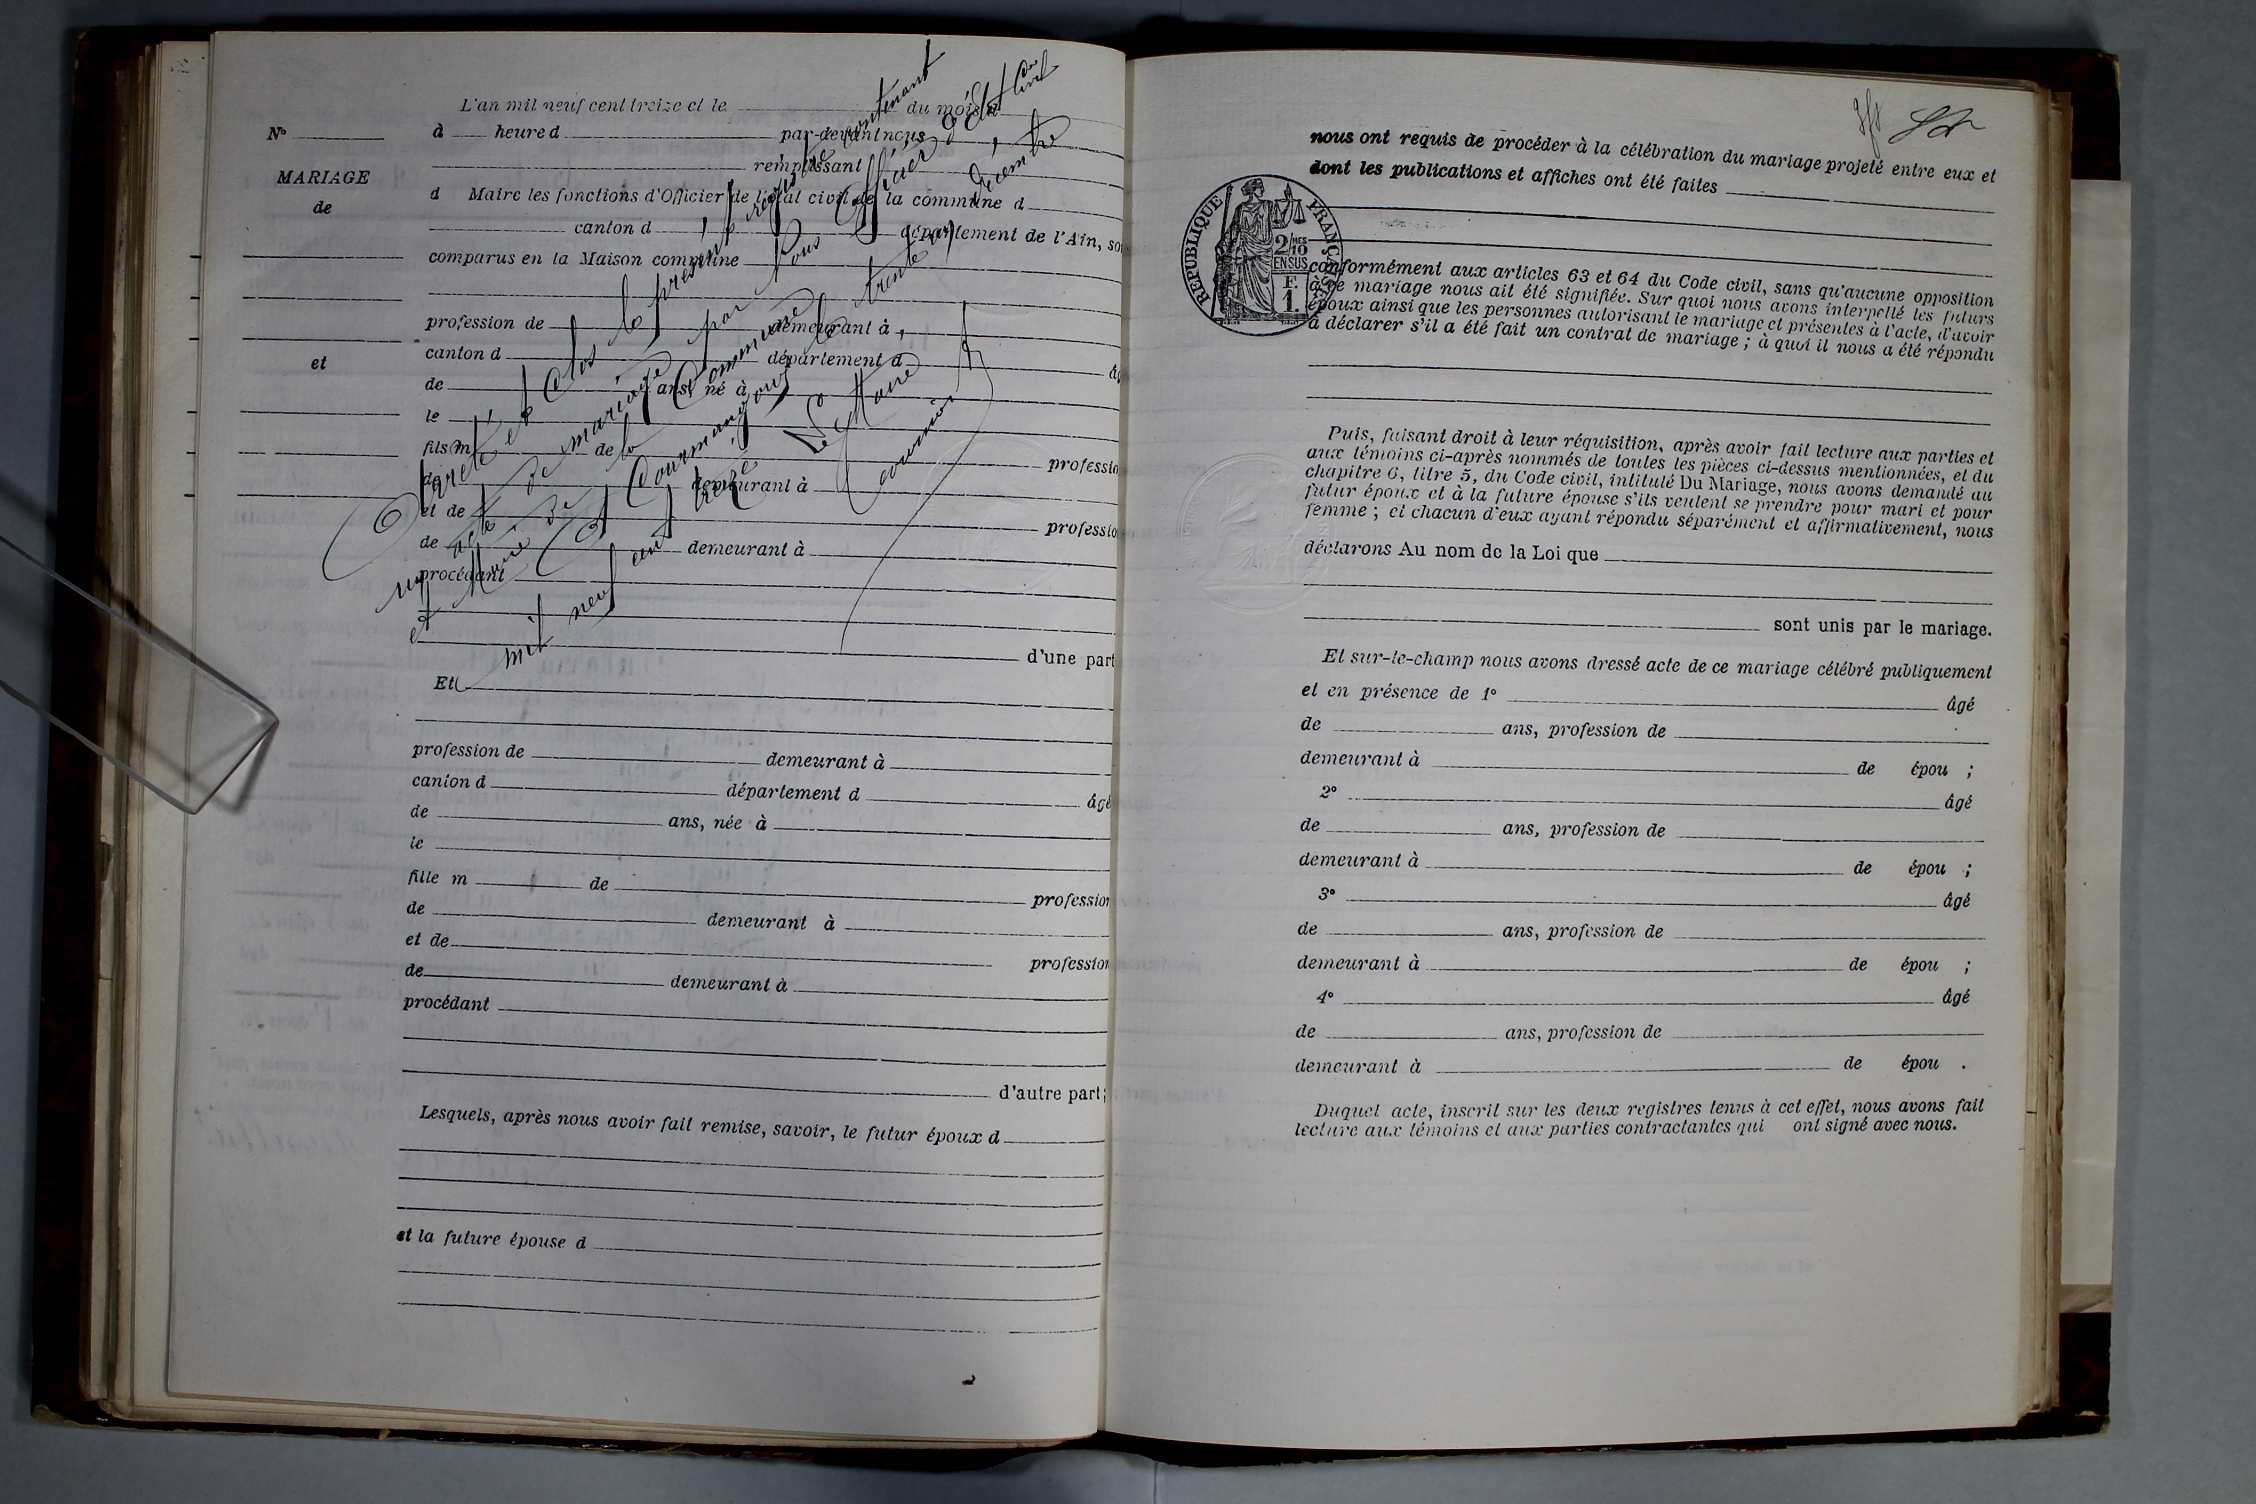 L'an mil neuf cent treize et le du mois d
N° à heure d par-devant nous
remplissant
MARIAGE
de
d Maire les fonctions d'Officier de l'état civil de la commune d
canton d département de l'Ain, so
comparus en la Maison commune
profession de demeurant à
canton d département d âg
et
de ans, né à
le
fils m de professio
de demeurant à
et de professio
de demeurant à
procédant
d'une part
Et
profession de demeurant à
canton d département d âgé
de ans, née à
le
fille m de profession
de demeurant à
et de profession
de demeurant à
procédant
d'autre part;
Lesquels, après nous avoir fait remise, savoir, le futur époux d
et la future épouse d
Arrêté et clos le présent registre contenant
un acte de mariage par Nous Officier d'Etat civil
et Maire de la Commune
de Courmangoux le trente un décembre
mil neuf cent treize
Le Maire
nous ont requis de procéder à la célébration du mariage projeté entre eux et
dont les publications et affiches ont été faites
RÉPUBLIQUE FRANÇAISE
2/10MES
EN SUS
F.
1.
conformément aux articles 63 et 64 du Code civil, sans qu'aucune opposition
à ce mariage nous ait été signifiée. Sur quoi nous avons interpellé les futurs
époux ainsi que les personnes autorisant le mariage et présentes à l'acte, d'avoir
à déclarer s'il a été fait un contrat de mariage ; à quoi il nous a été répondu
Puis, faisant droit à leur réquisition, après avoir fait lecture aux parties et
aux témoins ci-après nommés de toutes les pièces ci-dessus mentionnées, et du
chapitre 6, titre 5, du Code civil, intitulé Du Mariage, nous avons demandé au
futur époux et à la future épouse s'ils veulent se prendre pour mari et pour
femme ; et chacun d'eux ayant répondu séparément et affirmativement, nous
déclarons Au nom de la Loi que
sont unis par le mariage.
Et sur-le-champ nous avons dressé acte de ce mariage célébré publiquement
et en présence de 1° âgé
de ans, profession de
demeurant à de épou ;
2° âgé
de ans, profession de
demeurant à de épou ;
3° âgé
de ans, profession de
demeurant à de épou ;
4° âgé
de ans, profession de
demeurant à de épou .
Duquel acte, inscrit sur les deux registres tenus à cet effet, nous avons fait
lecture aux témoins et aux parties contractantes qui ont signé avec nous.